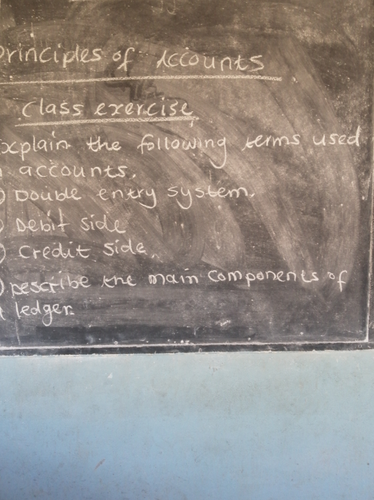 Principles of Accounts
Class exercise
Explain the following terms used
accounts.
) Double entry system.
) Debit side
) Credit side.
) Describe the main components of
ledger.